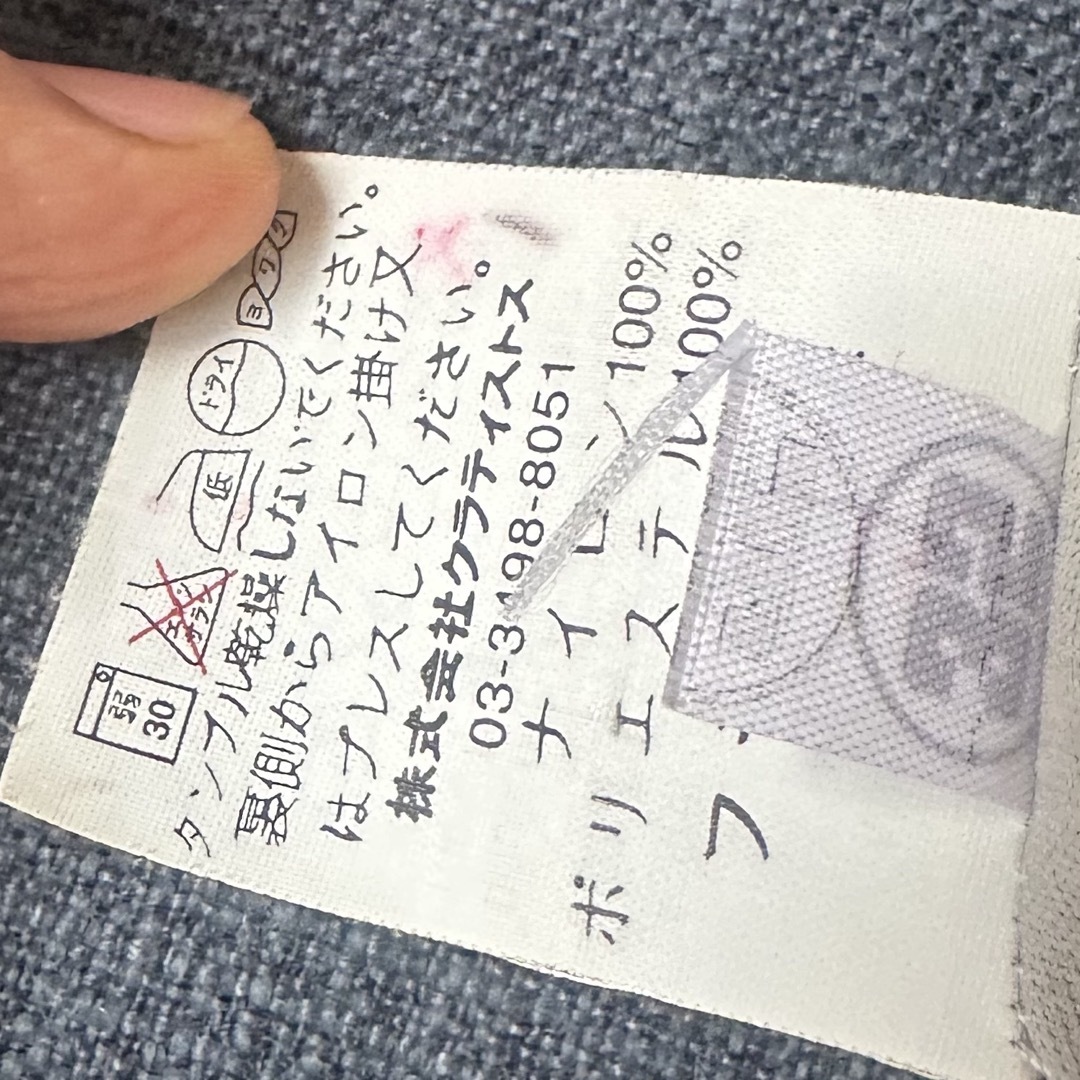 弱
30
エンソ
サラシ
低
ドライ
ヨワク
タンブル乾燥しないでください。
裏側からアイロン掛け又
はプレスしてください。
株式会社クラティストス
03-3498-8051
ナイロン 100%
ポリエステル 100%
フ